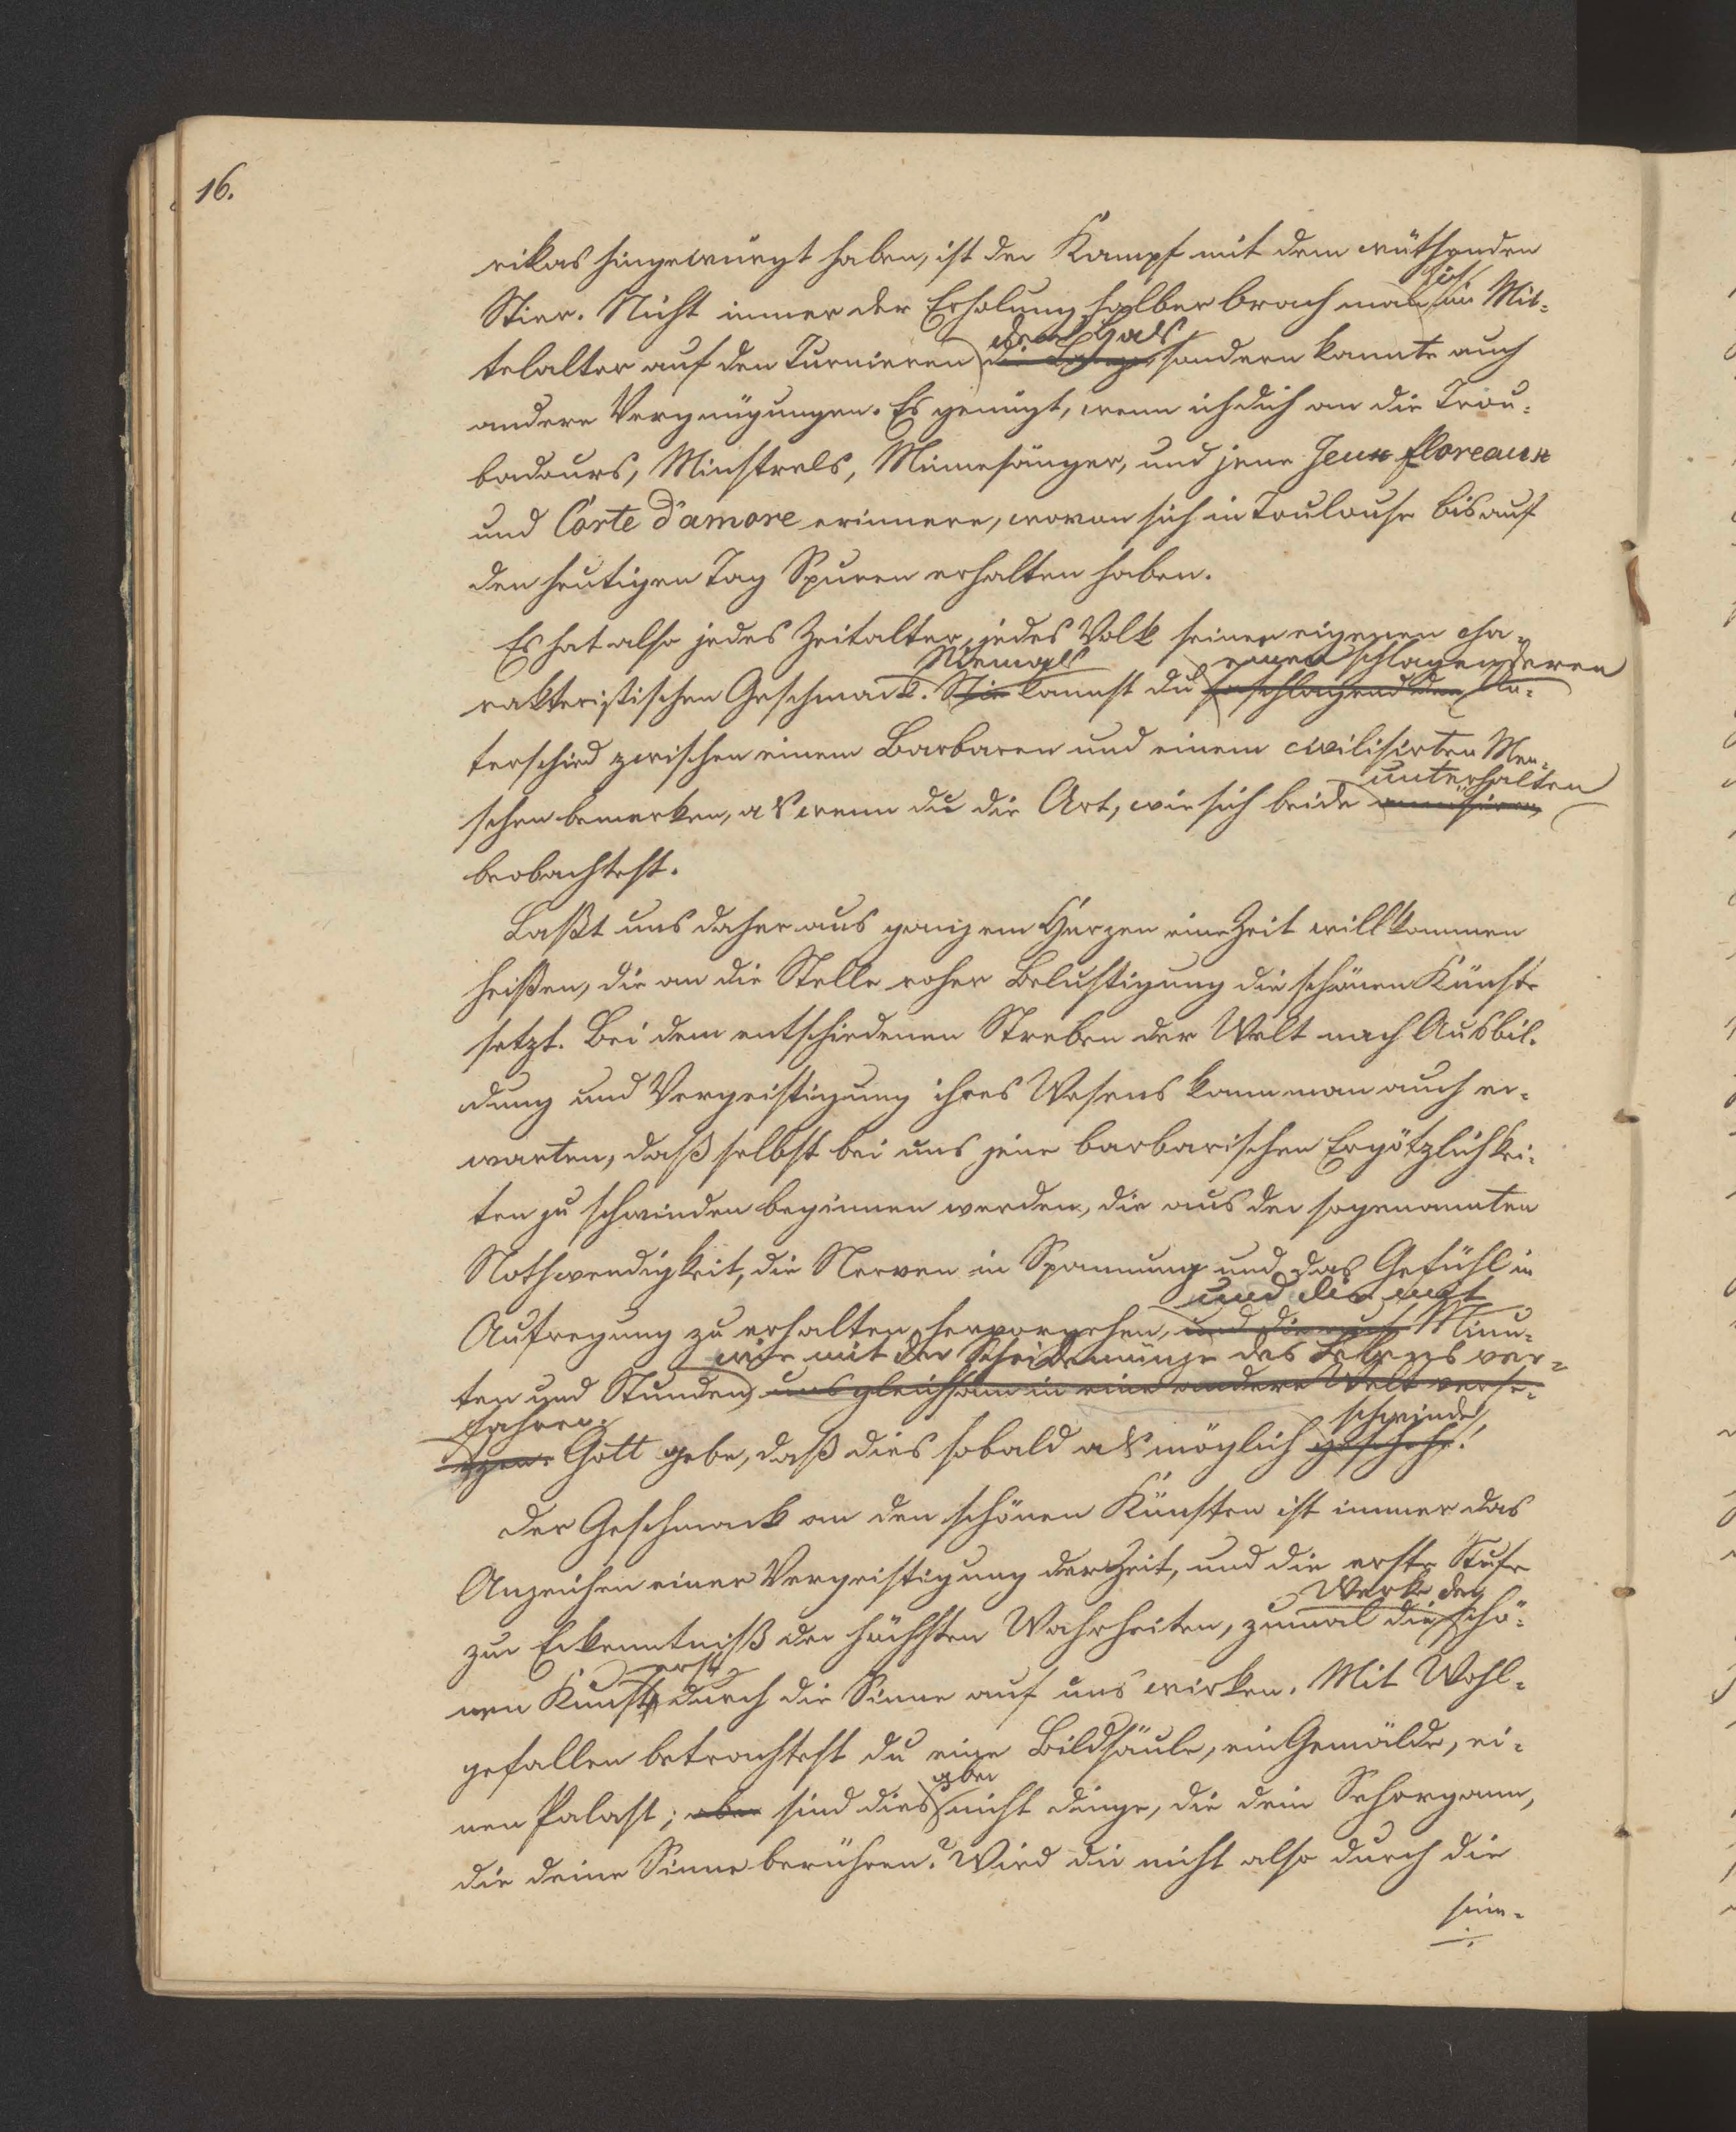 16.
rikas hingewürgt haben, ist der Kampf mit dem wüthenden
sich
Stier. Nicht immer der Erholung halber brach man im Mit-
den Hals
telalter auf den Turnieren die Lanze sondern kannte auch
andere Vergnügungen. Es genügt, wenn ich dich an die Trou-
badours, Minstrels, Minnesänger, und jene Jeux floreaux
und Corte d'amore erinnere, wovon sich in Toulouse bis auf
den heutigen Tag Spuren erhalten haben.
Es hat also jedes Zeitalter, jedes Volk seinen eigenen cha-
Niemals einen schlagenderen
rakteristischen Geschmack. Nie kannst du so schlagend den Un-
terschied zwischen einem Barbaren und einem civilisirten Men-
unterhalten
schen bemerken, als wenn du die Art, wie sich beide amusiren,
beobachtest.
Laßt uns daher aus ganzem Herzen eine Zeit willkommen
heißen, die an die Stelle roher Belustigung die schönen Künste
setzt. Bei dem entschiedenen Streben der Welt nach Ausbil-
dung und Vergeistigung ihres Wesens kann man auch er-
warten, daß selbst bei uns jene barbarischen Ergötzlichkei-
ten zu schwinden beginnen werden, die aus der sogenannten
Nothwendigkeit, die Nerven in Spannung und das Gefühl in
und die mit
Aufregung zu erhalten, hervorgehen, und die auf Minu-
wie mit der Scheidemünze des Lebens ver-
ten und Stunden uns gleichsam in eine andere Welt verse-
fahren.
tzen. Gott gebe, daß dies sobald als möglich geschehe!
schwinde
Der Geschmack an den schönen Künsten ist immer das
Anzeichen einer Vergeistigung der Zeit, und die erste Stufe
Werke der
zur Erkenntniß der höchsten Wahrheiten, zumal die schö-
erst
nen Kunst durch die Sinne auf uns wirken. Mit Wohl-
gefallen betrachtest du eine Bildsäule, ein Gemälde, ei-
aber
nen Palast; aber sind dies nicht Dinge, die dein Sehorgann,
die deine Sinne berühren? Wird die nicht also durch die
sinn-